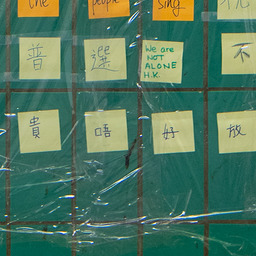 the people sing
普 選 We are 不
NOT
ALONE
H.K.
貴 唔 好 放